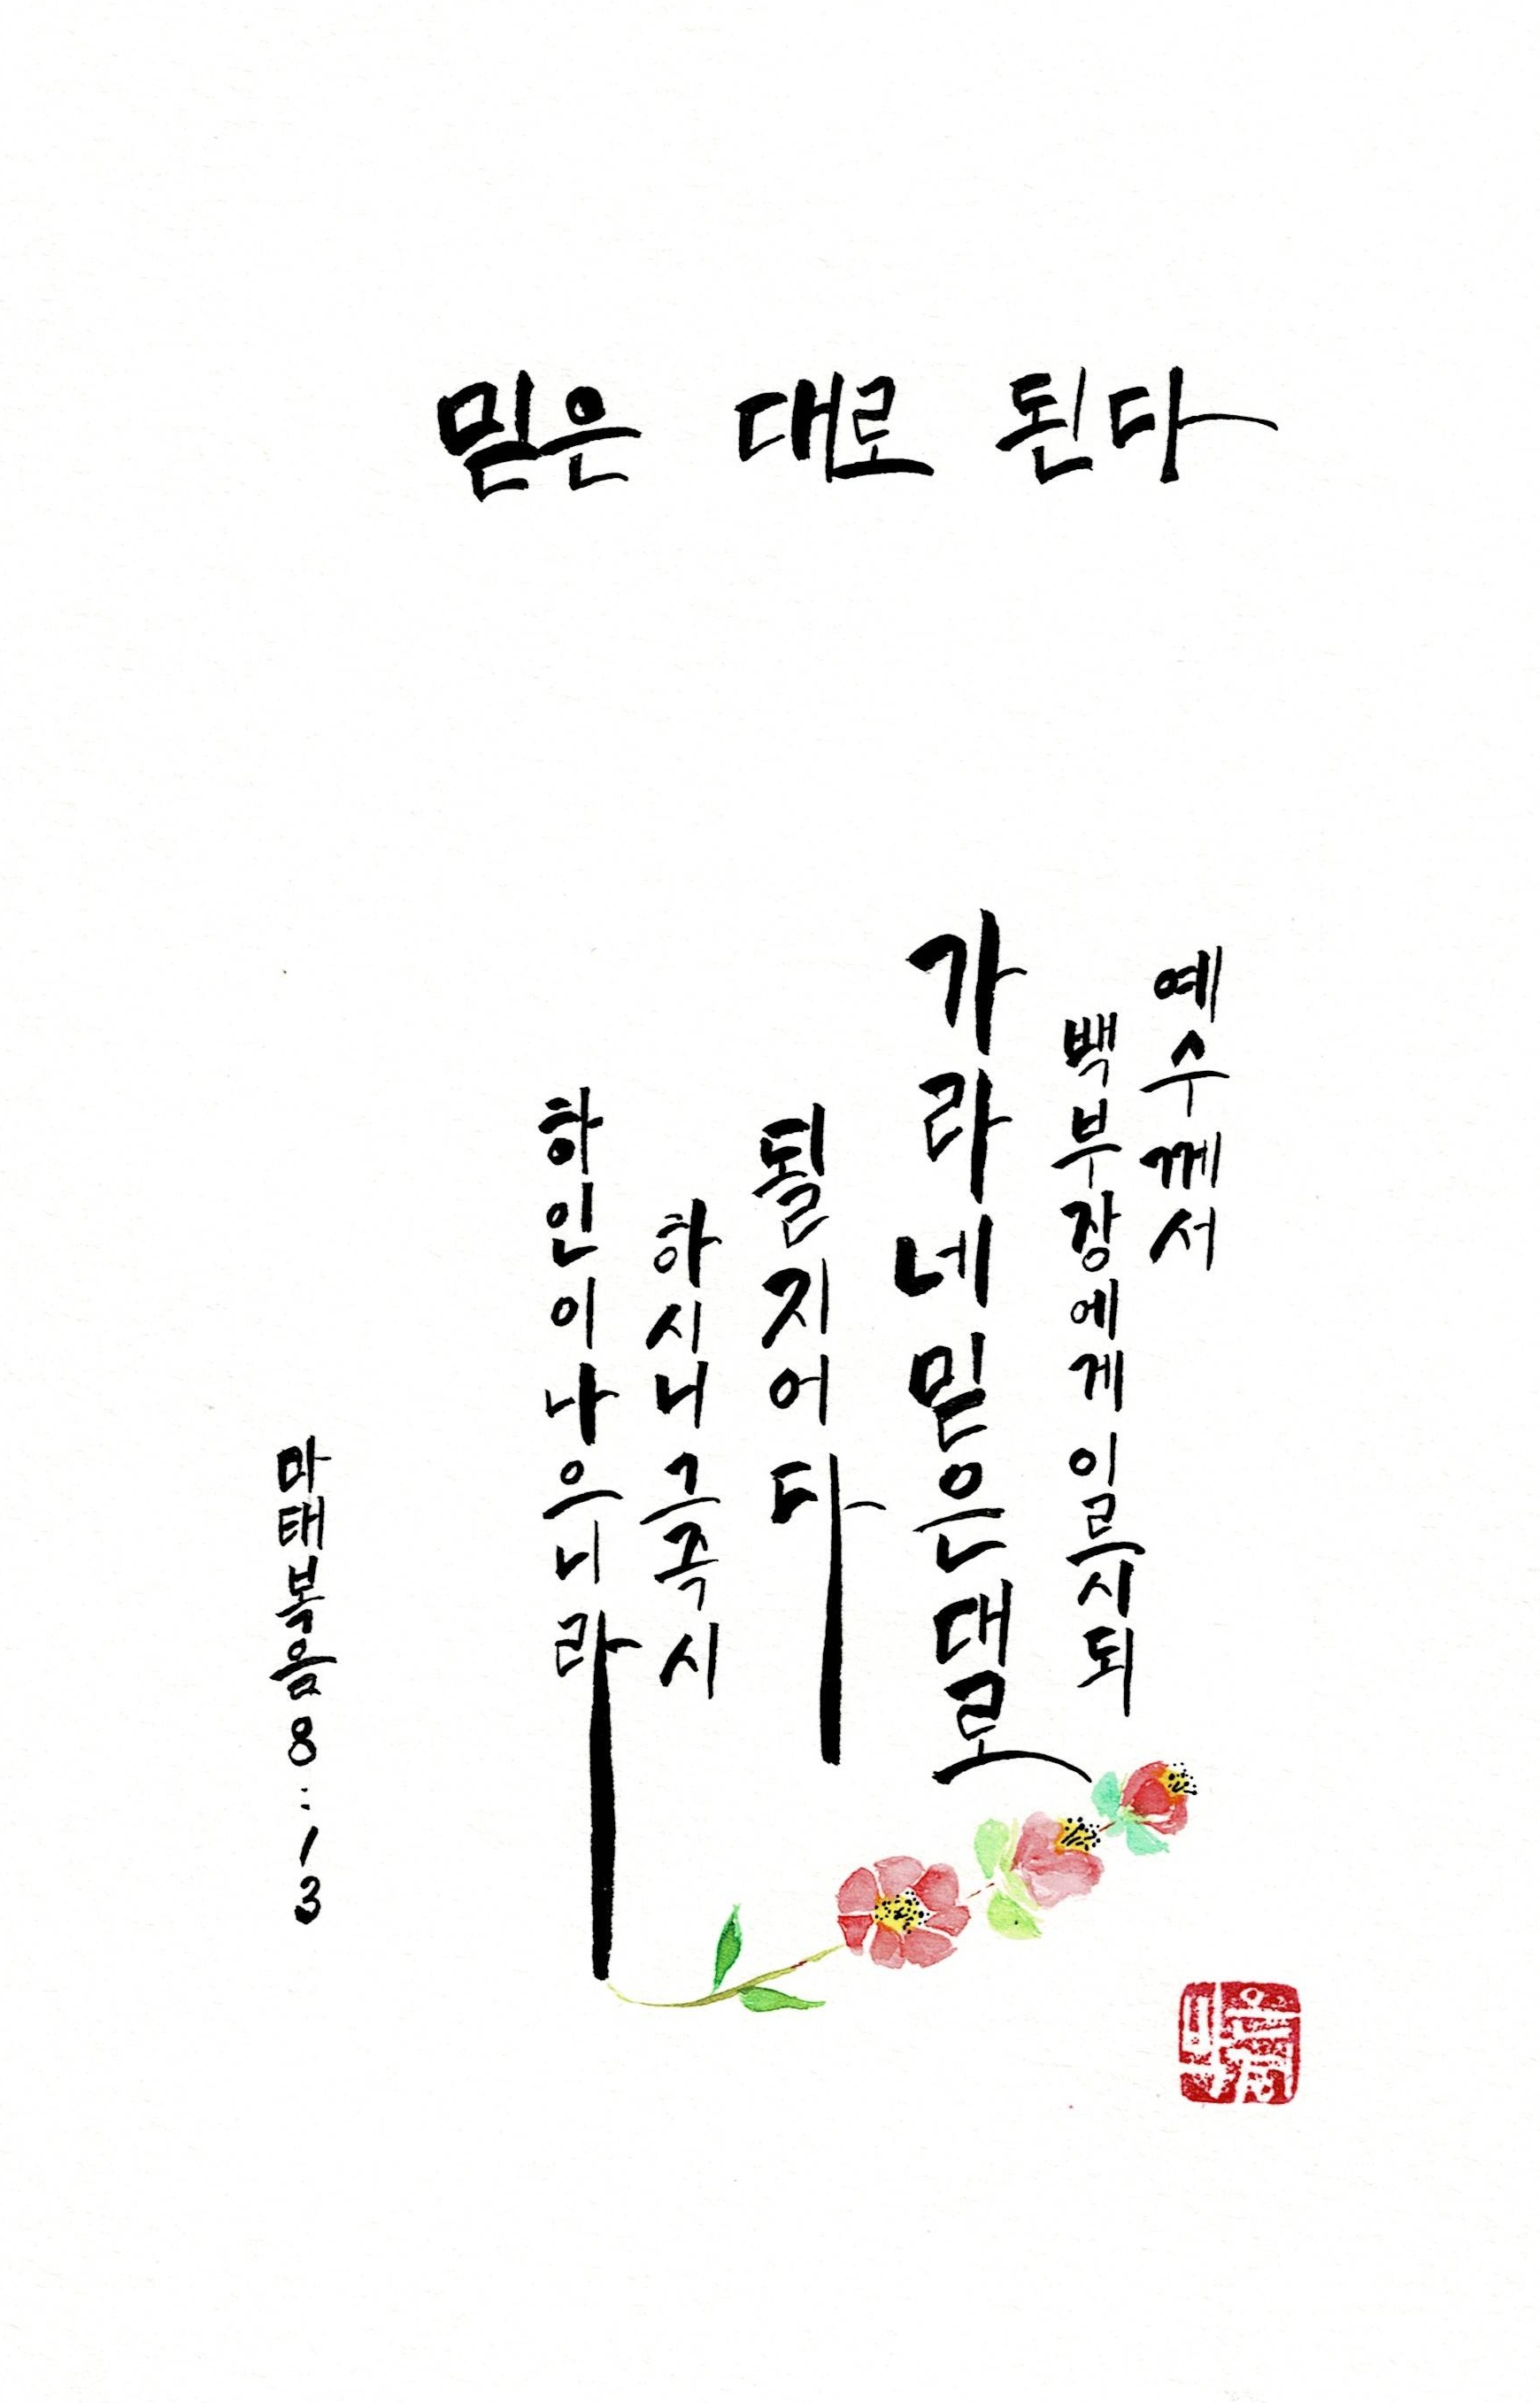 믿은 대로 된다
예수께서
백부장에게 이르시되
가라 네 믿은대로
될지어다
하시니 그 즉시
하인이 나으니라
마태복음 8:13